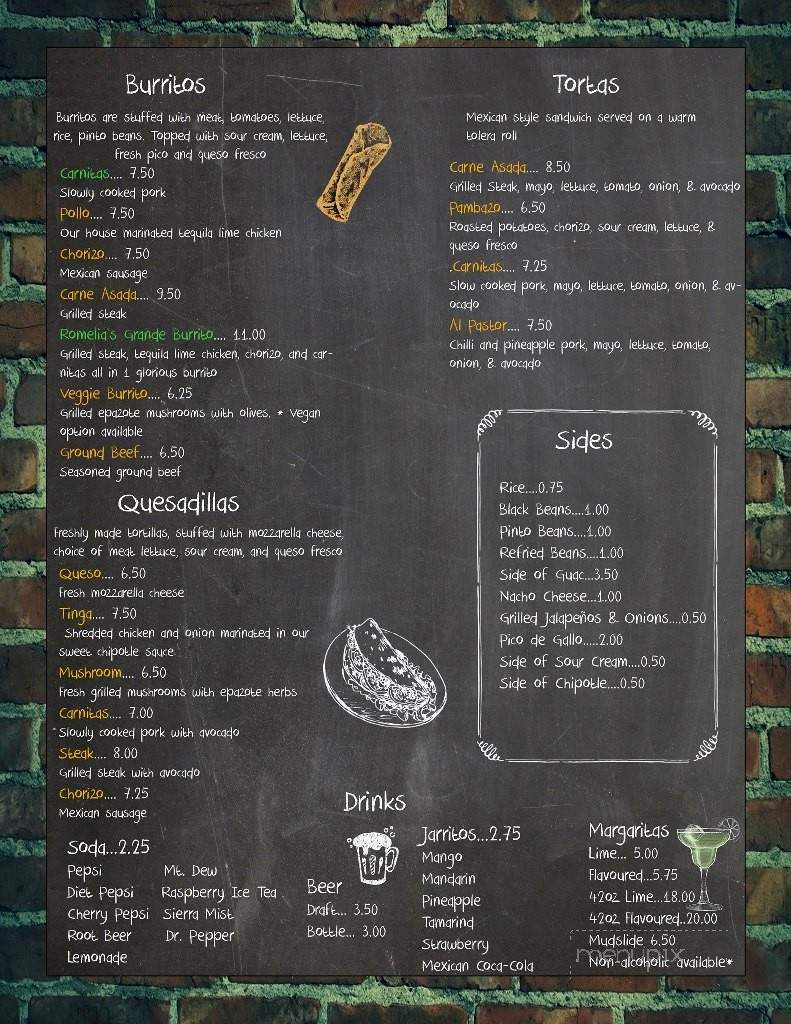 Burritos
Burritos are stuffed with meat, tomatoes, lettuce,
rice, pinto beans. Topped with sour cream, lettuce,
fresh pico and queso fresco
Carnitas.... 7.50
Slowly cooked pork
Pollo.... 7.50
Our house marinated tequila lime chicken
Chorizo.... 7.50
Mexican sausage
Carne Asada.... 9.50
Grilled steak
Romelia's Grande Burrito.... 11.00
Grilled steak, tequila lime chicken, chorizo, and car-
nitas all in 1 glorious burrito
Veggie Burrito.... 6.25
Grilled epazote mushrooms with olives. * Vegan
option available
Ground Beef.... 6.50
Seasoned ground beef
Quesadillas
Freshly made tortillas, stuffed with mozzarella cheese,
choice of meat lettuce, sour cream, and queso fresco
Queso.... 6.50
Fresh mozzarella cheese
Tinga.... 7.50
Shredded chicken and onion marinated in our
sweet chipotle sauce.
Mushroom.... 6.50
Fresh grilled mushrooms with epazote herbs
Carnitas.... 7.00
Slowly cooked pork with avocado
Steak.... 8.00
Grilled steak with avocado
Chorizo.... 7.25
Mexican sausage
Tortas
Mexican style sandwich served on a warm
tolera roll
Carne Asada.... 8.50
Grilled Steak, mayo, lettuce, tomato, onion, & avocado
Pambazo.... 6.50
Roasted potatoes, chorizo, sour cream, lettuce, &
queso fresco
.Carnitas.... 7.25
Slow cooked pork, mayo, lettuce, tomato, onion, & av-
ocado
Al Pastor.... 7.50
Chilli and pineapple pork, mayo, lettuce, tomato,
onion, & avocado
Sides
Rice....0.75
Black Beans....1.00
Pinto Beans....1.00
Refried Beans....1.00
Side of Guac...3.50
Nacho Cheese...1.00
Grilled Jalapeños & Onions....0.50
Pico de Gallo.....2.00
Side of Sour Cream....0.50
Side of Chipotle....0.50
Drinks
Soda...2.25
Pepsi
Diet Pepsi
Cherry Pepsi
Root Beer
Lemonade
Mt. Dew
Raspberry Ice Tea
Sierra Mist
Dr. Pepper
Beer
Draft... 3.50
Bottle... 3.00
Jarritos...2.75
Mango
Mandarin
Pineapple
Tamarind
Strawberry
Mexican Coca-Cola
Margaritas
Lime... 5.00
Flavoured...5.75
42oz Lime...18.00
42oz Flavoured..20.00
Mudslide 6.50
Non-alcoholic available*
menupix